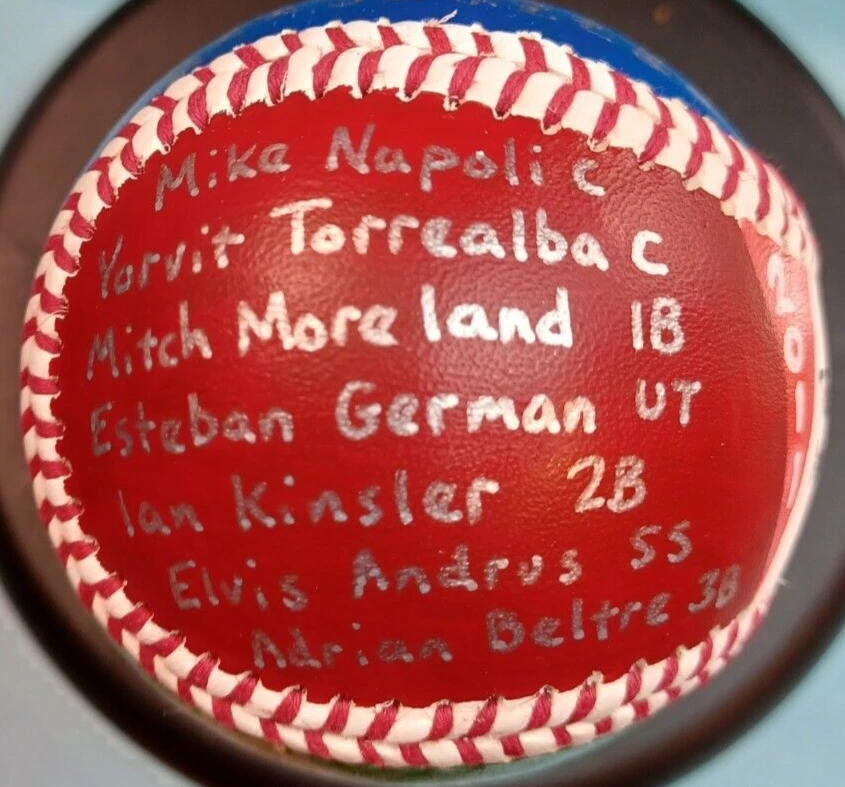 Mike Napoli C
Yorvit Torrealba C
Mitch Moreland 1B
Esteban German UT
Ian Kinsler 2B
Elvis Andrus SS
Adrian Beltre 3B
2011